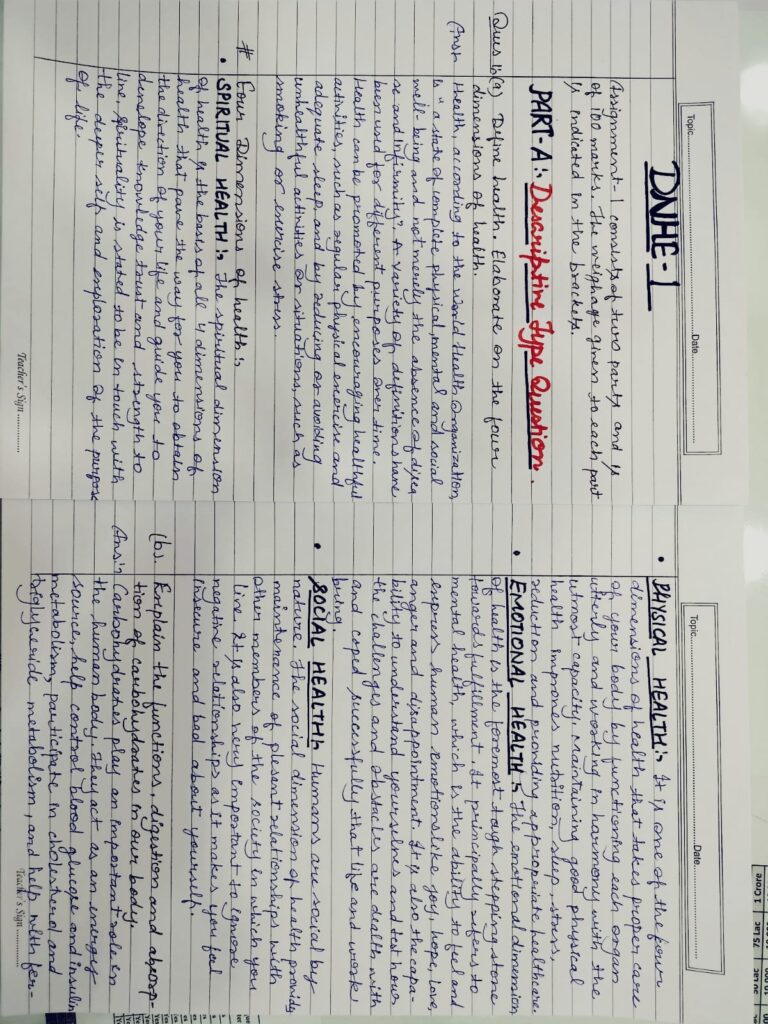 Topic Date
DNHE-1
Assignment-1 consists of two parts and is
of 100 marks. The weighage given to each part
is indicated in the brackets.
PART-A:- Descriptive Type Question.
Ques 1.(a) Define health. Elaborate on the four
dimensions of health.
Ans:- Health, according to the world Health Organization,
is "a state of complete physical, mental and social
well-being and not merely the absence of disea
se and infirmity". A variety of definitions have
been used for different purposes over time.
Health can be promoted by encouraging healthful
activities, such as regular physical exercise and
adequate sleep, and by reducing or avoiding
unhealthful activities or situations, such as
smoking or exercise stress.
# Four Dimensions of health:-
• SPIRITUAL HEALTH:- The spiritual dimension
of health is the basis of all 4 dimensions of
health that pave the way for you to obtain
the direction of your life and guide you to
develope knowledge trust and strength to
live, spirituality is stated to be in touch with
the deeper self and exploration of the purpose
of life.
Teacher's Sign
Topic Date
• PHYSICAL HEALTH:- It is one of the four
dimensions of health that takes proper care
of your body by functioning each organ
utterly and working in harmony with the
utmost capacity. Maintaining good physical
health improves nutrition, sleep, stress,
reduction and providing appropriate healthcare.
• EMOTIONAL HEALTH:- The emotional dimension
of health is the foremost tough stepping stone
towards fulfillment. It principally refers to
mental health, which is the ability to feel and
express human emotions like joy, hope, love,
anger and disappointment. It is also the capa-
bility to understand yourselves and test how
the challenges and obstacles are dealth with
and coped successfully that life and work
bring.
• SOCIAL HEALTH:- Humans are social by
nature. The social dimension of health provids
maintenance of present relationships with
other members of the society in which you
live. It is also very important to ignore
negative relationships as it makes you feel
insecure and bad about yourself.
(b). Explain the functions, digestion and absorp-
tion of carbohydrates in our body.
Ans:- Carbohydrates play an important role in
the human body. They act as an energy
source, help control blood glucose and insulin
metabolism, participate in cholesterol and
triglyceride metabolism, and help with fer-
Teacher's Sign
1 Crore
75 Lac